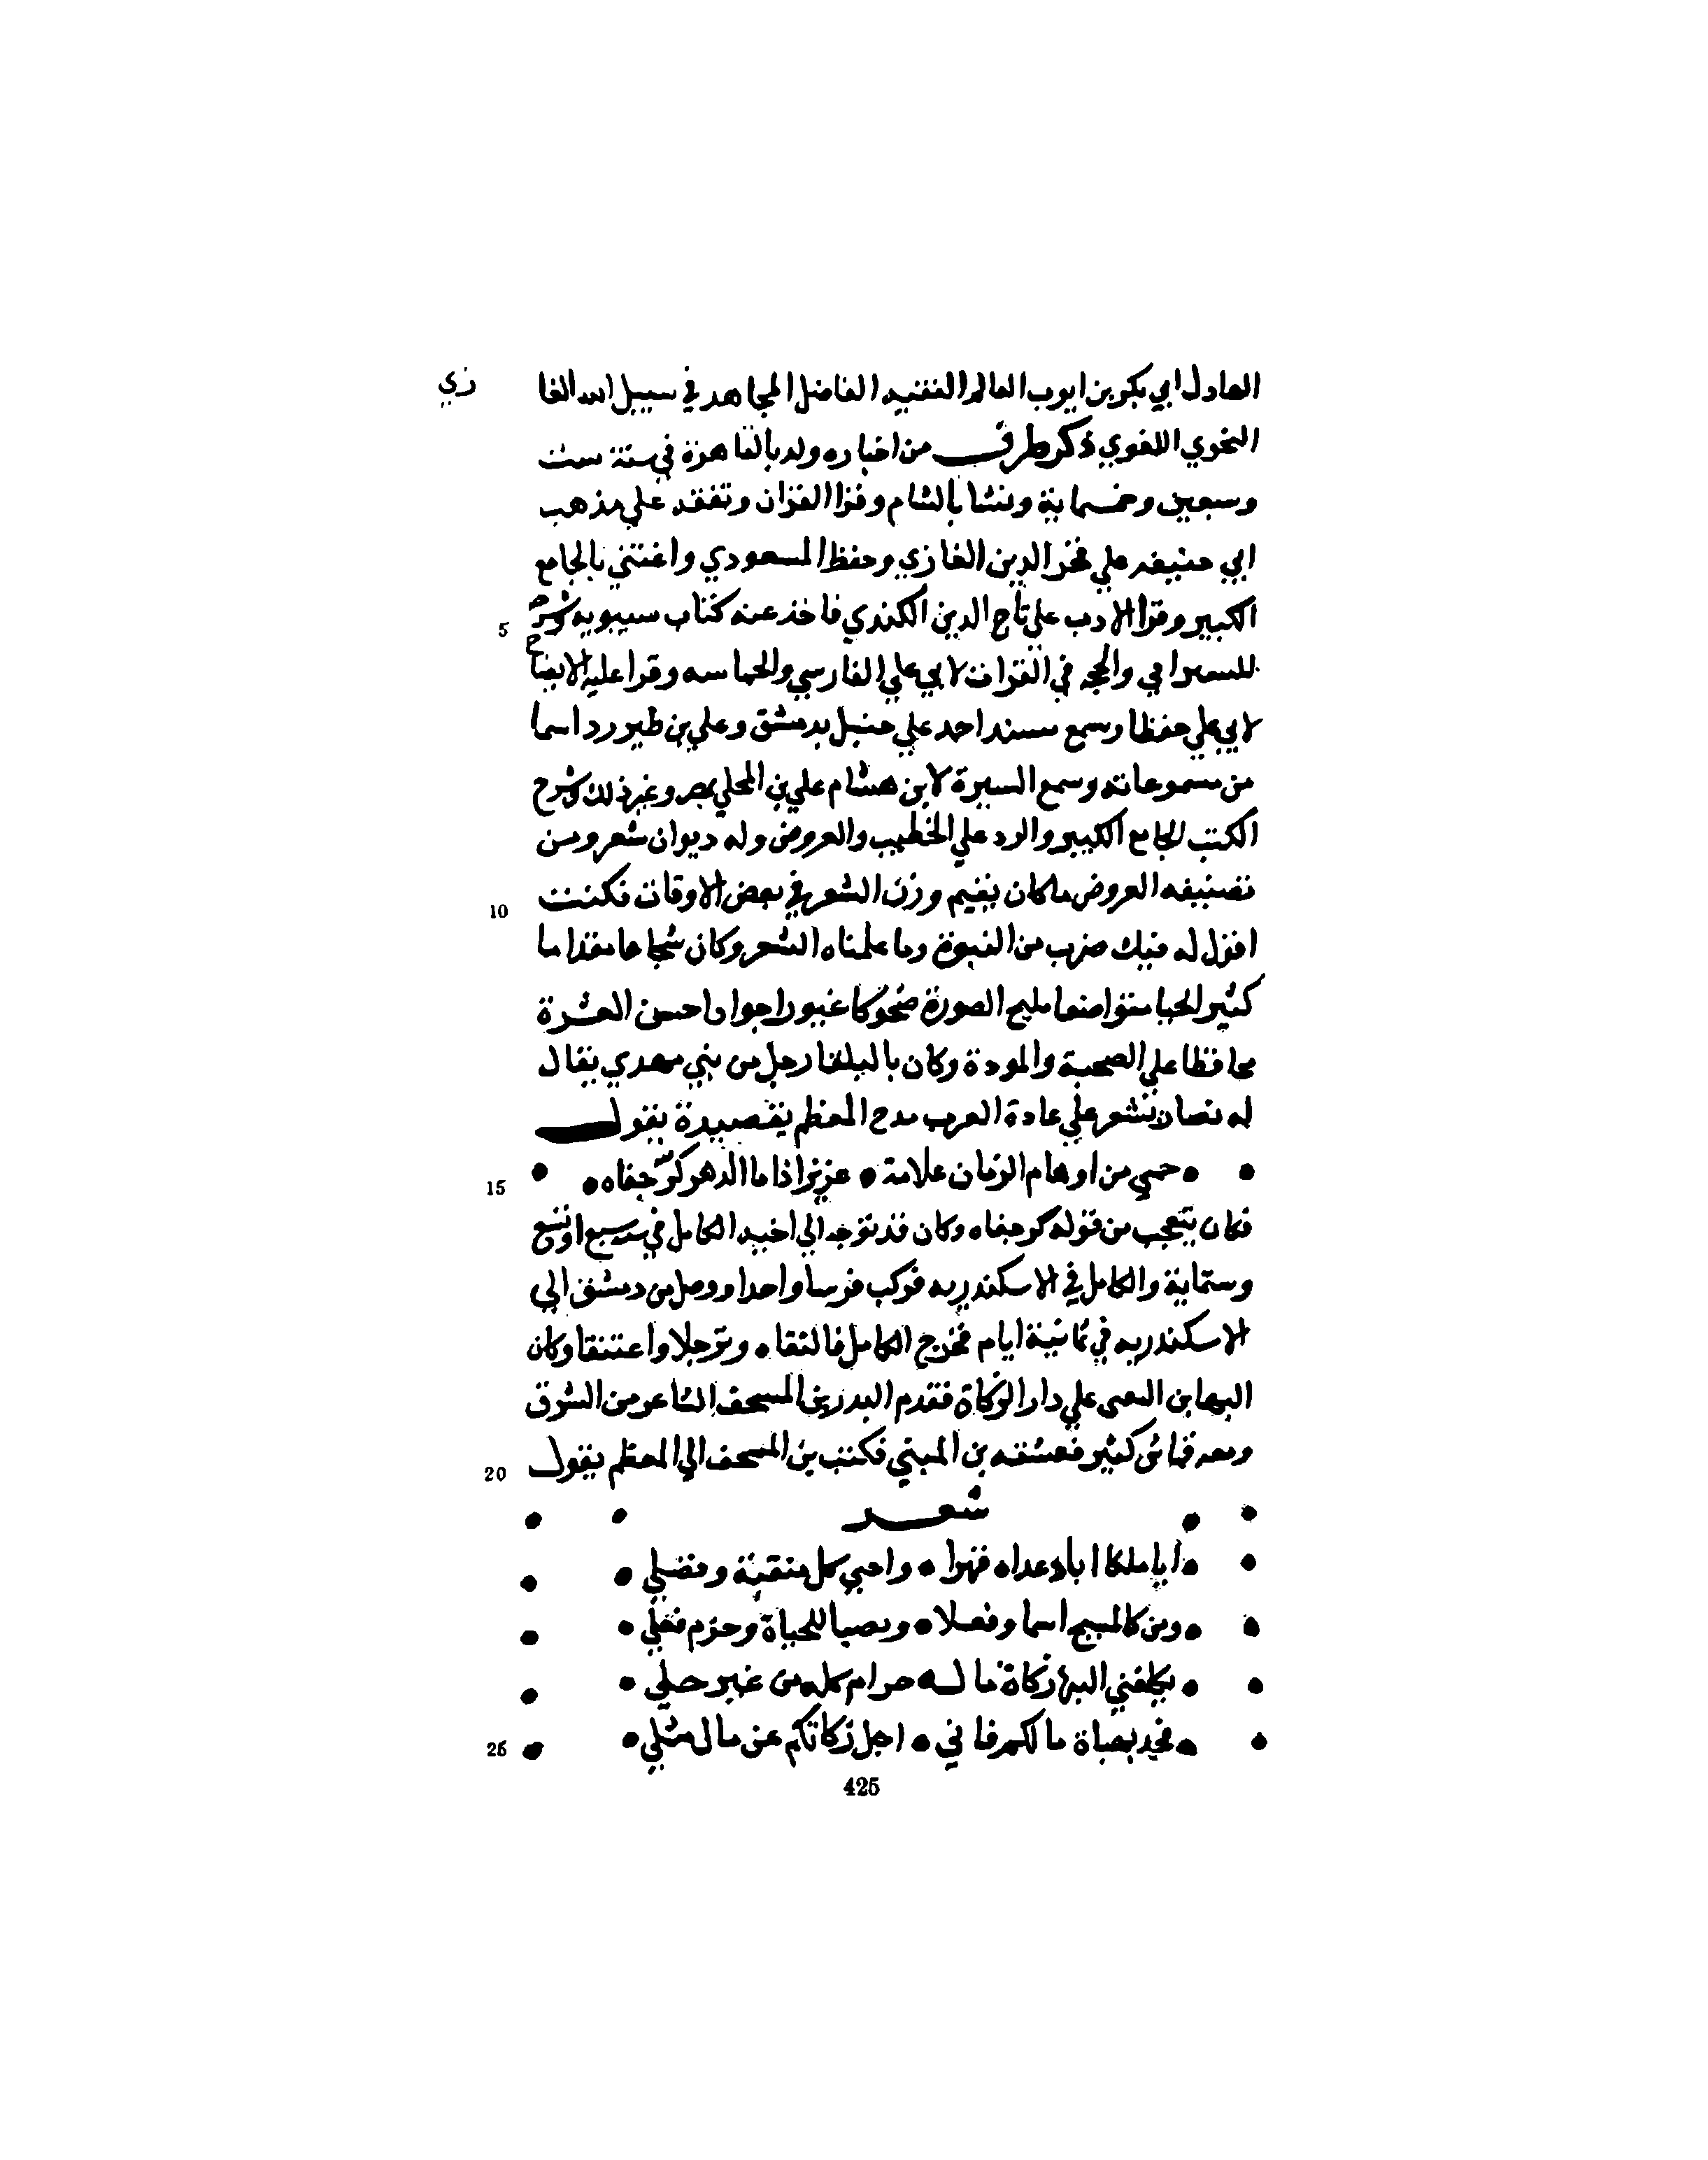 العادل ابي بكر بن ايوب العالم الفقيه الفاضل المجاهد في سبيل الله الغازي
النحوي اللغوي ذكر طرف من اخباره ولد بالقاهرة في سنة ست
وسبعين وخمسماية ونشا بالشام وقرا القران وتفقه علي مذهب
ابي حنيفه علي فخر الدين الغازي وحفظ المسعودي واعتني بالجامع
الكبير وقرا الادب علي تاج الدين الكندي فاخذ عنه كتاب سيبويه وشرحه
5
للسيرافي والحجه في القراات لابي علي الفارسي والحماسه وقرا عليه الايضاح
لابي علي حفظا وسمع مسند احمد علي حنبل بدمشق وعلي بن طبررد اسما
من مسموعاته وسمع السيرة لابن هشام علي بن المحلي بمصر وغير ذلك وشرح
الكتب الجامع الكبير والرد علي الخطيب والعروض وله ديوان شعر ومن
تصنيفه العروض ما كان يقيم وزن الشعر في بعض الاوقات فكنت
10
اقول له فيك ضرب من النبوة وما علمناه الشعر وكان شجاعا مقداما
كثير الحيا متواضعا مليح الصورة ضحوكا غيورا جوادا حسن العشرة
محافظا علي الصحبة والمودة وكان بالبلقا رجل من بني مهدي يقال
له ينشعر علي عادة العرب مدح المعظم بقصيدة يقول
• • حمي من اوهام الزمان علامة • عزيز اذا ما الدهر كرّ جفاه • •
15
فكان يتعجب من قوله كر جفاه وكان قد توجه الي اخيه الكامل في سنة سبع او تسع
وستماية والكامل في الاسكندريه فركب فرسا واحدا ووصل من دمشق الي
الاسكندريه في ثمانية ايام فخرج الكامل فالتقاه وترجلا واعتنقا وكان
البها بن علي دار الزكاة فقدم البدر بن المسحف الشاعر من الشرق
ومعه قماش كثير بن فكتب بن المسحف الي المعظم يقول
20
• • شعر • •
• • ايا ملكا اباد عداه قهرا • واحيي كل منقبة وفضلي • •
• • ومن كالمسيح اسما وفعلا • للحياة وحزم فعلي • •
• • يكلفني البها زكاة مال • حرام كله من غير حلي • •
• • مالكم فاني • اجل زكاتكم عن مال مثلي • •
25
425